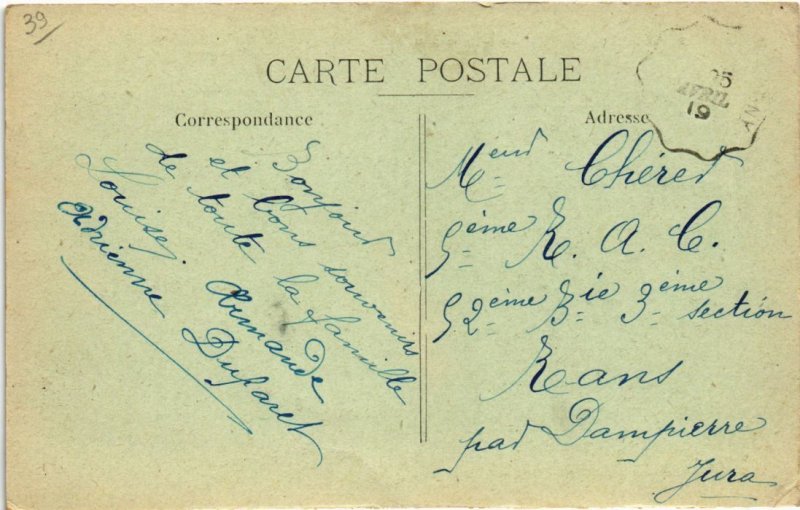 39
CARTE POSTALE
Correspondance
Bonjour
et bons souvenirs
de toute la famille
Louise. Armande
Adrienne Dufaret
Adresse
AVRIL
19
Mʳ Chéret
5ème R. A. C.
52ème Bie 3ème section
Rans
par Dampierre
Jura